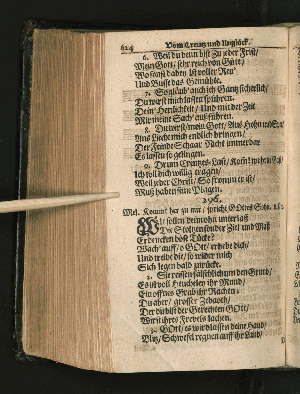 624 Vom Creutz und Unglück.
6. Weil du denn bist Zu jeder Frist/
Mein Gott/ sehr reich von Güte/
Wo sonst dabey Ist
Und Busse das Gemüthe.
7. So gläub' auch ich Gantz sicherlich/
Du werst mich lassen spühren
Dein' Herrlichkeit/ Und mit der Zeit
Mir meine Sach' außführen.
8. Du wirst/ mein Gott/
endlich bringen/
Der Feinde Schaar Nicht immerdar
Es lassen so gelingen.
9. Drum Creutzes-Last/
Ich wil dich willig tragen/
Weil jeder Christ/ So fromm er ist/
Muß haben seine Plagen.
296.
Mel. Kommt her zu mir/ spricht GOttes Sohn.
WIe sollen deinwohn unterlaß
Die Stoltzen sonder Ziel und Maß
Erdencken böse Tücke?
Wach' auff/ o GOtt/ erhebe dich/
Und treibe die/ so wider mich
Sich legen bald zurücke.
2. Sie reissen fälschlich um den Grund/
Es ist voll Heucheley ihr Mund/
Ein offnes Grab ihr Rachen.
Du aber/ grosser Zebaoth/
Der du bist der Gerechten GOtt/
Wirst ihres Frevels lachen.
3. GOtt/ es wird lassen deine Hand/
Blitz/ Schwefel regnen auff ihr Land/